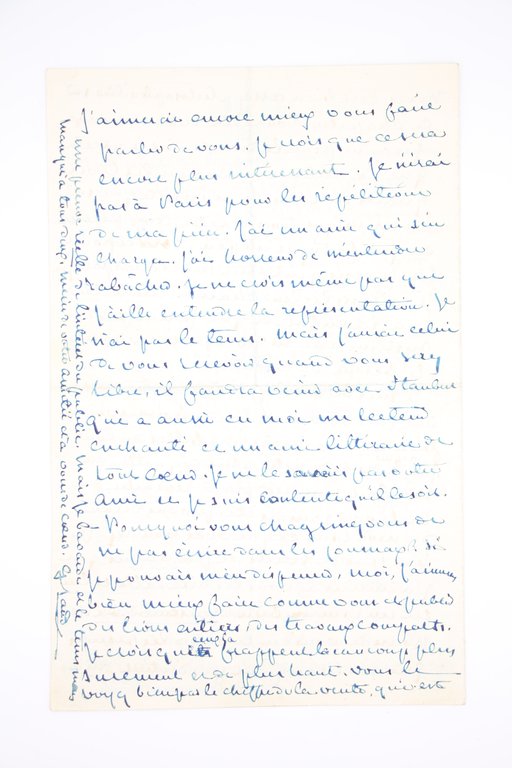 J'aimerais encore mieux vous faire
parler de vous. Je crois que ce sera
encore plus intéressant. Je n'irai
pas à Paris pour les répétitions
de ma pièce. J'ai un ami qui s'en
charge. J'ai horreur de m'entendre
rabâcher. Je ne crois même pas que
j'aille entendre la représentation. Je
n'ai pas le tems. Mais j'aurai celui
de vous recevoir quand vous serez
libre, il faudra venir avec
qui a aussi en moi un lecteur
enchanté et un ami littéraire de
tout cœur. Je ne le savais pas votre
ami et je suis contente qu'il le soit.
– Pourquoi vous chagrinez vous de
ne pas écrire dans les journaux? Si
je pouvais m'en dispenser, moi, j'aimerais
bien mieux faire comme vous et publier
des livres entiers, des travaux compacts.
Je crois que cela frappe beaucoup plus
surement et de plus haut. Vous le
voyez bien par le chiffre de la vente, qui est
une preuve réelle de l'intérêt du public. Mais je bavarde et le tems nous
manque à tous deux. Merci de votre amitié et à vous de cœur. G. Sand